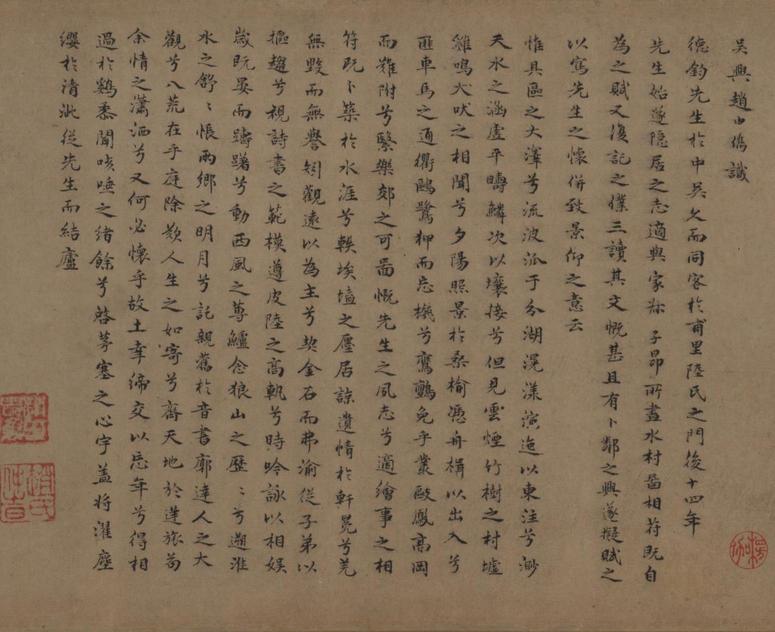 吳興趙由儁識
德鈞先生於中吳久而同客於甫里陸氏之門後十四年
先生始遂隱居之志適與家叔子昂所畫水村圖相符既自
為之賦又復記之僕三讀其文慨甚且有卜鄰之興遂擬賦之
以寫先生之懷併致景仰之意云
惟具區之大澤兮流波泒于分湖滉漾演迤以東注兮渺
天水之涵虛平疇鱗次以壤接兮但見雲煙竹樹之村墟
雞鳴犬吠之相聞兮夕陽照景於桑榆憑舟楫以出入兮
匪車馬之通衢鷗鷺狎而忘機兮鷹鸇免乎叢歐鳳高岡
而難附兮繄樂郊之可圖慨先生之夙志兮適繪事之相
符既卜築於水涯兮軼埃壒之廛居諒遺情於軒冕兮羌
無毀而無譽矧觀遠以為主兮契金石而弗渝從子弟以
摳趨兮視詩書之範模遵皮陸之高軌兮時吟詠以相娛
歲既晏而躊躇兮動西風之蓴鱸念狼山之歷〻兮遡淮
水之舒〻悵兩鄉之明月兮託親舊於音書廓達人之大
觀兮八荒在乎庭除欵人生之如寄兮齊天地於蘧旅苟
余情之瀟洒兮又何必懷乎故土幸締交以忘年兮得相
過於鷄黍聞咳唾之緒餘兮啓茅塞之心宇蓋将濯塵
纓於清泚從先生而結廬
趙氏